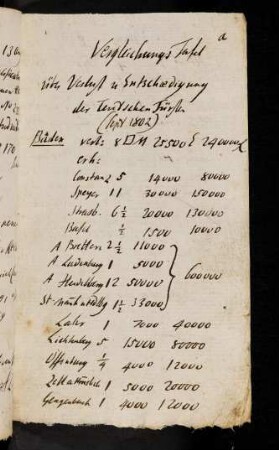 a
Vergleichungs Tafel
über Verlust u Entschædigung
der teutschen Fürst.
(Sept 1802)
Baden verl: 8 □ M 25500 240000
erh:
Constanz 5 14000 80000
Speyer 11 30000 150000
Strasb. 6 1/2 20000 130000
Basel 1/2 1500 10000
A Bretten 2 1/2 11000
A Ladenburg 1 5000
A Heidelberg 12 50000 600000
St 1 1/2 33000
Lahr 1 7000 40000
Lichtenberg 5 15000 80000
Offenburg 1/4 4000 12000
Zell 1 5000 20000
Gengenbach 1 4000 12000